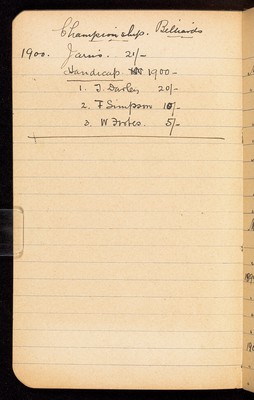 Championship. Billiards
1900. Jarvis. 21/-
Handicap 1900-
1. J. 20/-
2. F Simpson 10/-
3. W 5/-